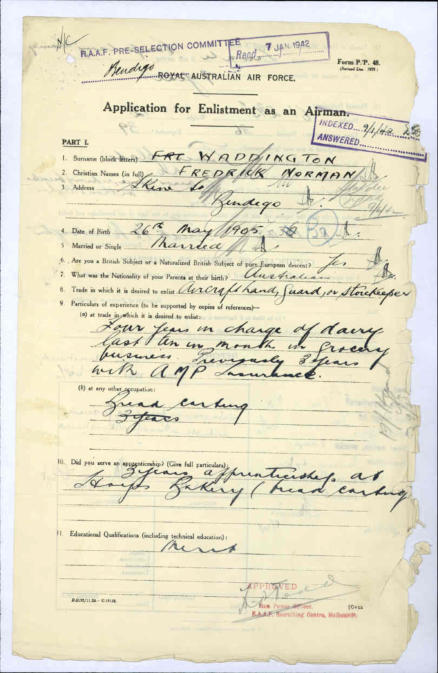 R.A.A.F. PRE-SELECTION COMMITTEE
Recd. 7 JAN 1942
Form P/P. 48.
Bendigo
ROYAL AUSTRALIAN AIR FORCE.
Application for Enlistment as an Airman.
INDEXED
ANSWERED
PART I.
1. Surname (block letters) WADDINGTON
2. Christian Names (in full) FREDRICK NORMAN
3. Address Skene St
Bendigo
4. Date of Birth 26th May 1905
5. Married or Single Married
6. Are you a British Subject or a Naturalized British Subject of pure European descent? Yes
7. What was the Nationality of your Parents at their birth? Australian
8. Trade in which it is desired to enlist Aircrafthand, Guard, or Storekeeper
9. Particulars of experience (to be supported by copies of references)—
(a) at trade in which it is desired to enlist:
Four years in charge of dairy
last month in Grocery
business. Previously 3 years
with AMP Insurance.
(b) at any other occupation:
Bread carting
3 years
10. Did you serve an apprenticeship? (Give full particulars)
3 years apprenticeship at
Bakery (bread carting
11. Educational Qualifications (including technical education):
Merit
APPROVED
Man Power Officer.
R.A.A.F. Recruiting Centre, Melbourne.